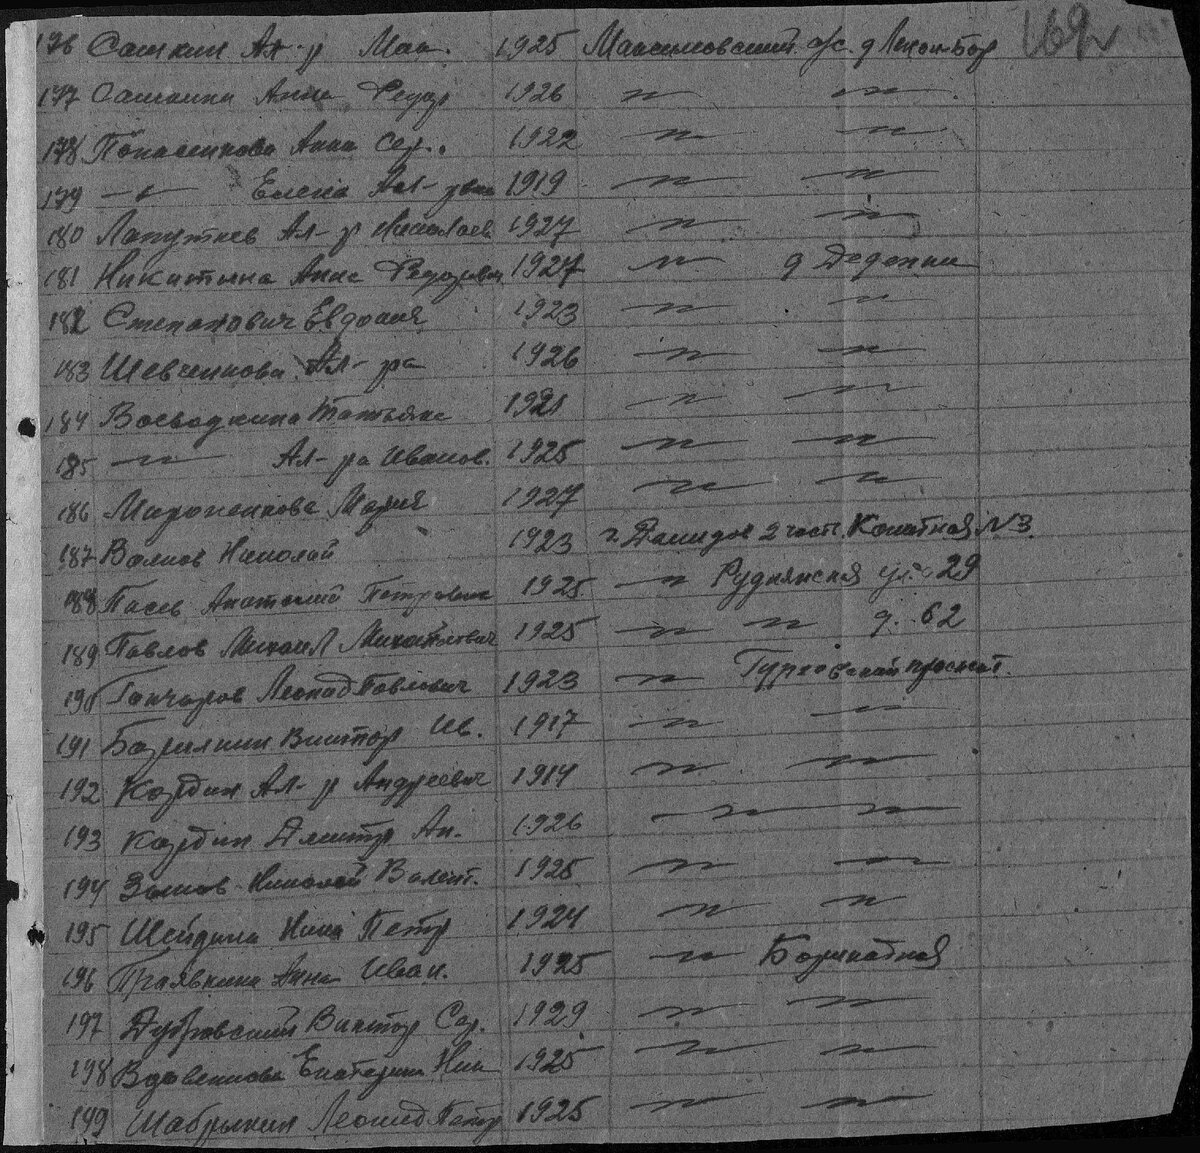 169
176 Сашкин Ал-р Мак. 1925 Максимовский с/с. д
177 Сашкина Анна Федор 1926 —"— —"—
178 Понасенкова Анна Сер. 1922 —"— —"—
179 —"— Елена Ал-ровна 1919 —"— —"—
180 Лапутнев Ал-р Николаев 1927 —"— —"—
181 Никитина Анна Федоровн 1927 —"— д Деденки
182 Степанович Евдокия 1923 —"— —"—
183 Шевченкова Ал-ра 1926 —"— —"—
184 Воеводкина Татьяна 1921 —"— —"—
185 —"— Ал-ра Иванов. 1925 —"— —"—
186 Мироненкова Мария 1927 —"— —"—
187 Волков Николай 1923 г. Демидов 2 часть. Канатная №3.
188 Анатолий Петрович 1925 —"— Руднянская ул. 29
189 Павлов Михаил Михайлович 1925 —"— —"— д. 62
190 Гончаров Леонид Павлович 1923 —"—
191 Виктор Ив. 1917 —"— —"—
192 Ал-р Андреевич 1914 —"— —"—
193 Дмитр Ан. 1926 —"— —"—
194 Николай Валент. 1925 —"— —"—
195 Шейдина Нина Петр 1924 —"— —"—
196 Анна Иван. 1925 —"—
197 Дубровский Виктор Сер. 1929 —"— —"—
198 Вдовенкова Екатерин Ник 1925 —"— —"—
199 Шабрыкин Леонид Петр 1925 —"— —"—